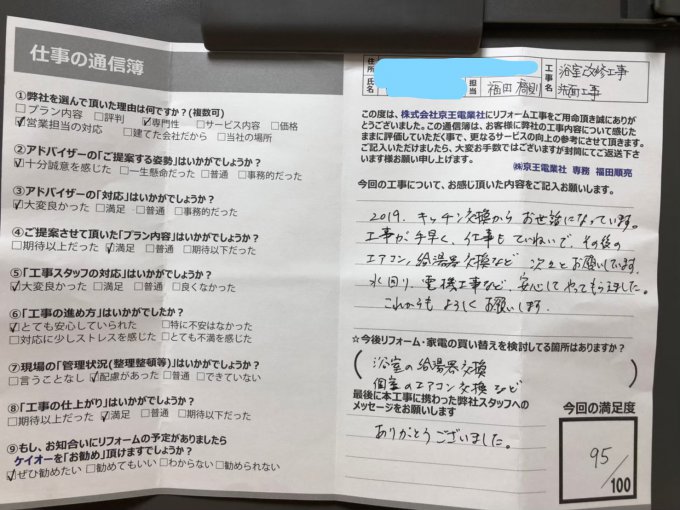 仕事の通信簿
①弊社を選んで頂いた理由は何ですか?(複数可)
□プラン内容 □評判 ☑専門性 □サービス内容 □価格
☑営業担当の対応 □建てた会社だから □当社の場所
②アドバイザーの「ご提案する姿勢」はいかがでしょうか?
☑十分誠意を感じた □一生懸命だった □普通 □事務的だった
③アドバイザーの「対応」はいかがでしょうか?
☑大変良かった □満足 □普通 □事務的だった
④ご提案させて頂いた「プラン内容」はいかがでしょうか?
□期待以上だった ☑満足 □普通 □期待以下だった
⑤「工事スタッフの対応」はいかがでしょうか?
☑大変良かった □満足 □普通 □良くなかった
⑥「工事の進め方」はいかがでしたか?
☑とても安心していられた □特に不安はなかった
□対応に少しストレスを感じた □とても不満を感じた
⑦現場の「管理状況(整理整頓等)」はいかがでしょうか?
□言うことなし ☑配慮があった □普通 □できていない
⑧「工事の仕上がり」はいかがでしょうか?
□期待以上だった ☑満足 □普通 □期待以下だった
⑨もし、お知合いにリフォームの予定がありましたら
ケイオーを「お勧め」頂けますでしょうか?
☑ぜひ勧めたい □勧めてもいい □わからない □勧められない
住所
氏名
担当
福田
工事名
浴室改修工事
洗面工事
この度は、株式会社京王電業社にリフォーム工事をご用命頂き誠にありが
とうございました。この通信簿は、お客様に弊社の工事内容について感じた
ままに評価していただく事で、更なるサービスの向上の参考にさせて頂きます。
ご記入いただけましたら、大変お手数ではございますが封筒にてご返送下さ
います様お願い申し上げます。
㈱京王電業社 専務 福田順亮
今回の工事について、お感じ頂いた内容をご記入お願いします。
2019. キッチン交換からお世話になっています。
工事が手早く、仕事もていねいで、その後の
エアコン、給湯器交換など 次々とお願いしています。
水回り、電機工事など、安心してやってもらえました。
これからもよろしくお願いします。
☆今後リフォーム・家電の買い替えを検討してる箇所はありますか?
(浴室の給湯器交換
個室のエアコン交換など)
最後に本工事に携わった弊社スタッフへの
メッセージをお願いします
ありがとうございました。
今回の満足度
95
/100